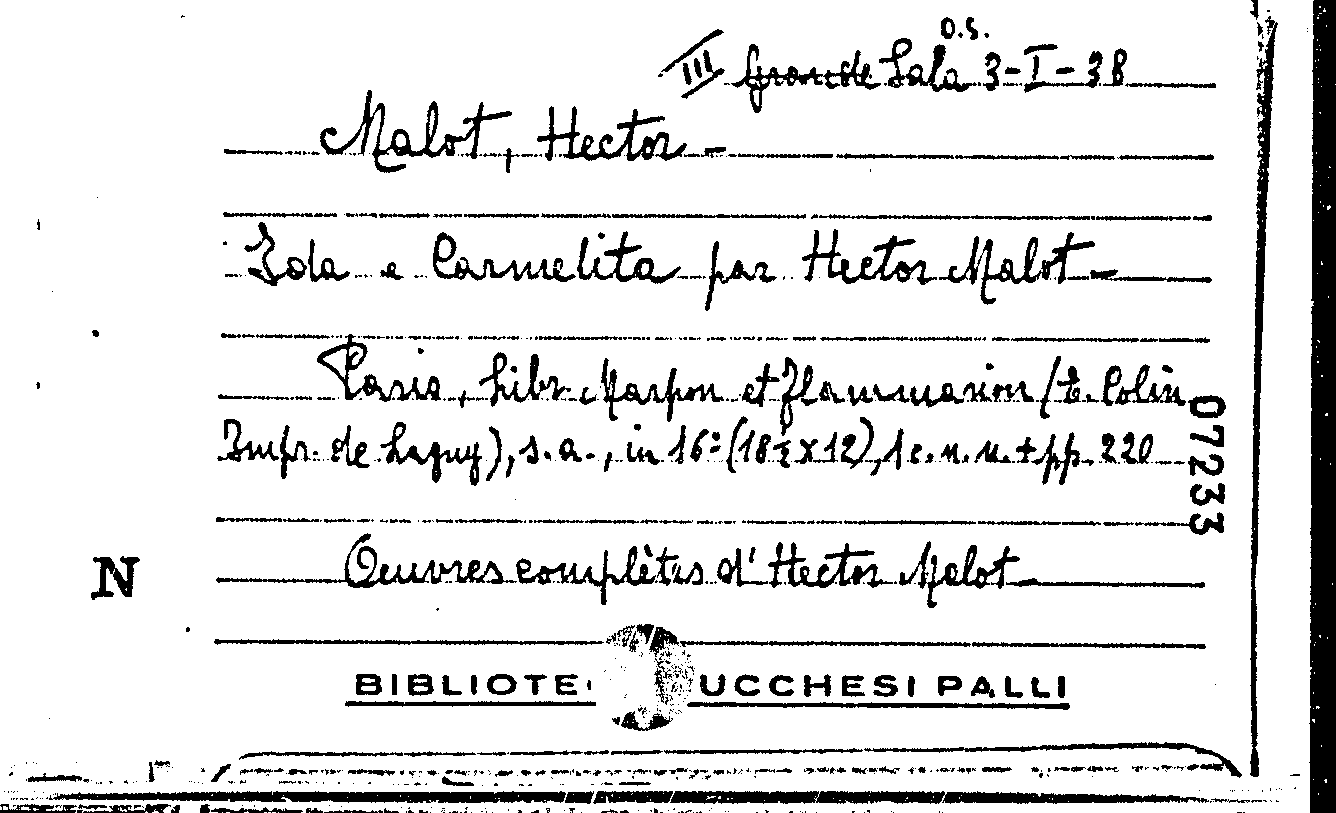 O.S.
III Grande Sala 3-I-38
Malot, Hector -
Ida e Carmelita par Hector Malot -
Paris, Libr. Marpon et Flammarion (E. Colin
Impr. de Lagny), s.a., in 16º (18½ x 12), 1 c. n. n. + pp. 220
07233
Oeuvres complètes d'Hector Malot -
N
BIBLIOTE UCCHESI PALLI